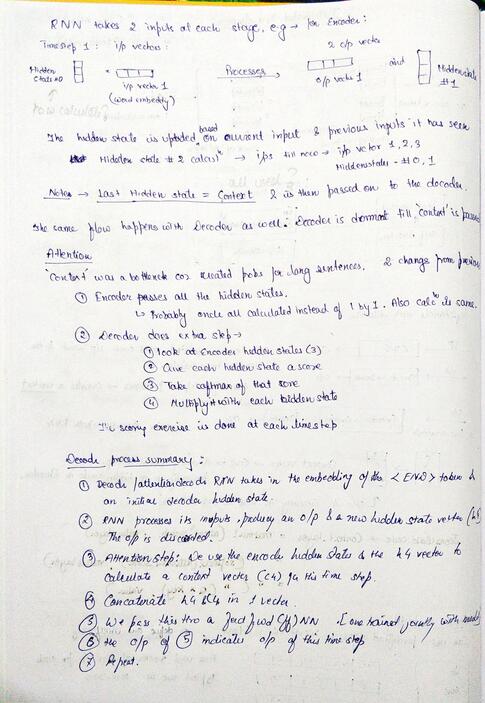 RNN takes 2 inputs at each stage, e.g → for Encoder:
Timestep 1 : i/p vectors: 2 o/p vectors
Hidden State #0 i/p vector 1 (word embeddg) Processes o/p vector 1 and Hidden state #1
The hidden state is updated based on current input & previous inputs it has seen
Hidden state # 2 calcs → i/ps till now → i/p vector 1,2,3
Hidden states - #0, 1
Note → Last Hidden state = Context & is then passed on to the decoder.
The same flow happens with Decoder as well. Decoder is dormant till 'context' is passed
Attention
'Context' was a bottleneck coz created pobs for long sentences. 2 change from previous
① Encoder passes all the hidden states.
↳ Probably once all calculated instead of 1 by 1. Also calcn is same.
② Decoder does extra step →
① Look at Encoder hidden states (3)
② Give each hidden state a score
③ Take softmax of that score
④ Multiply with each hidden state
The scoring exercise is done at each timestep
Decode process summary :
① Decode /attention decode RNN takes in the embedding of the <END> token &
an initial decoder hidden state.
② RNN processes its inputs, producg an o/p & a new hidden state vector (h4)
The o/p is discarded.
③ Attention step: We use the encode hidden states & the h4 vector to
calculate a context vector (C4) for this time step.
④ Concatenate h4 & C4 in 1 vector.
⑤ We pass this thro a feed fwd (ff) NN - [one trained jointly with model
⑥ the o/p of ⑤ indicates o/p of this time step
⑦ Repeat.